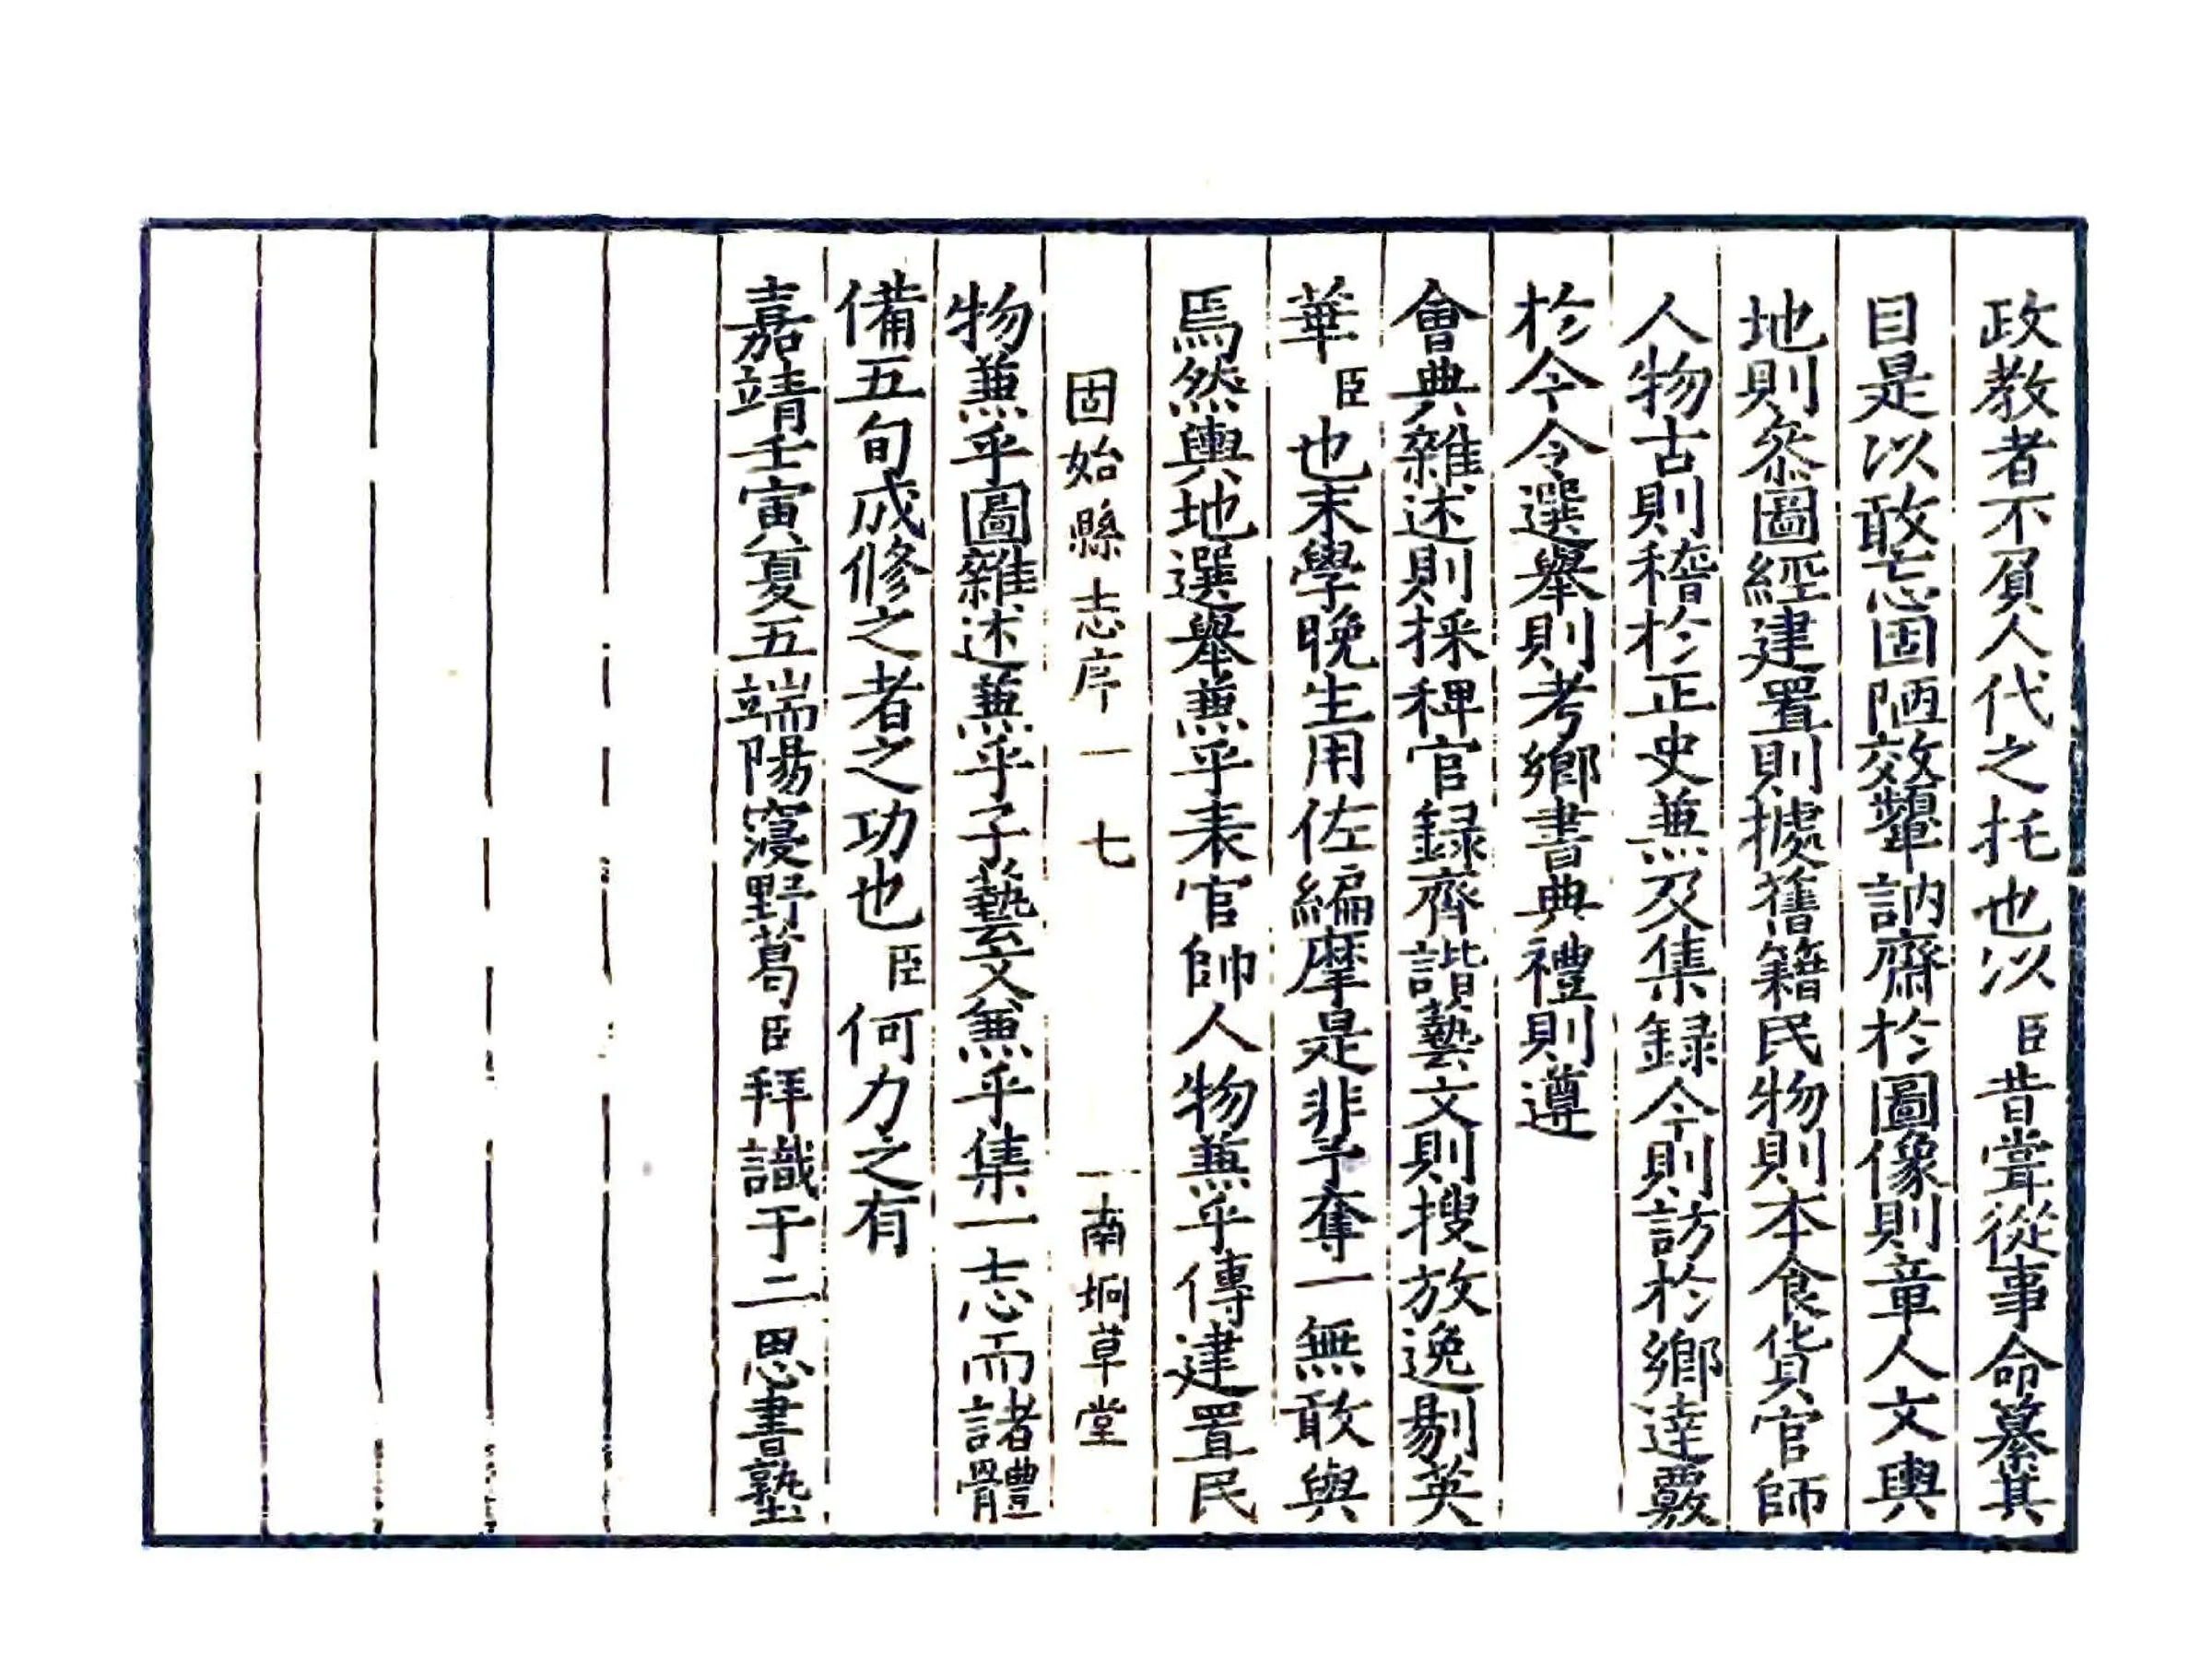 政教者不負人代之托也以臣昔嘗從事命纂其
目是以敢忘固陋效顰訥齋於圖像則章人文輿
地則叅圖經建置則據舊籍民物則本食貨官師
人物古則稽於正史兼及集録今則訪於鄉達覈
於今令選舉則考鄉書典禮則遵
會典雜述則採稗官録齊諧藝文則搜放逸剔英
華臣也末學晚生用佐編摩是非予奪一無敢與
焉然輿地選舉兼乎表官帥人物兼乎傳建置民
固始縣志序 一 七 南坰草堂
物兼乎圖雜述兼乎子藝文兼乎集一志而諸體
備五旬成修之者之功也臣何力之有
嘉靖壬寅夏五端陽寖野葛臣拜識于二思書塾